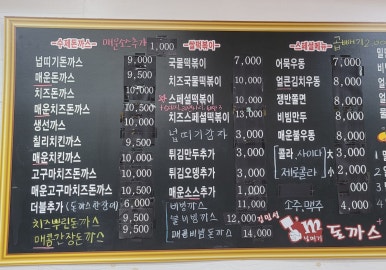 -수제돈까스-
매운소스추가 1,000
넙띠기돈까스 9,000
매운돈까스 9,500
치즈돈까스 10,000
매운치즈돈까스 10,500
생선까스 10,000
칠리치킨까스 9,500
매운치킨까스 9,500
고구마치즈돈까스 10,500
매운고구마치즈돈까스 10,500
더블추가 6,000
치즈뿌린돈까스
매콤간장돈까스
-쌀떡볶이-
국물떡볶이 7,000
치즈국물떡볶이 10,000
스페셜떡볶이 10,000
치즈스페셜떡볶이 13,000
넙띠기감자 3,000
튀김만두추가 3,000
튀김오뎅추가 3,000
매운소스추가 1,000
비빔까스 11,000
물비빔까스 12,000
매콤비빔돈까스 14,000
-스페셜메뉴-
곱빼기
어묵우동 7,000
얼큰김치우동 8,000
쟁반쫄면 8,000
비빔만두 8,000
매운불우동 8,000
콜라, 사이다 大 3,000
제로콜라 小 2,000
소주, 맥주 4,000
돈까스